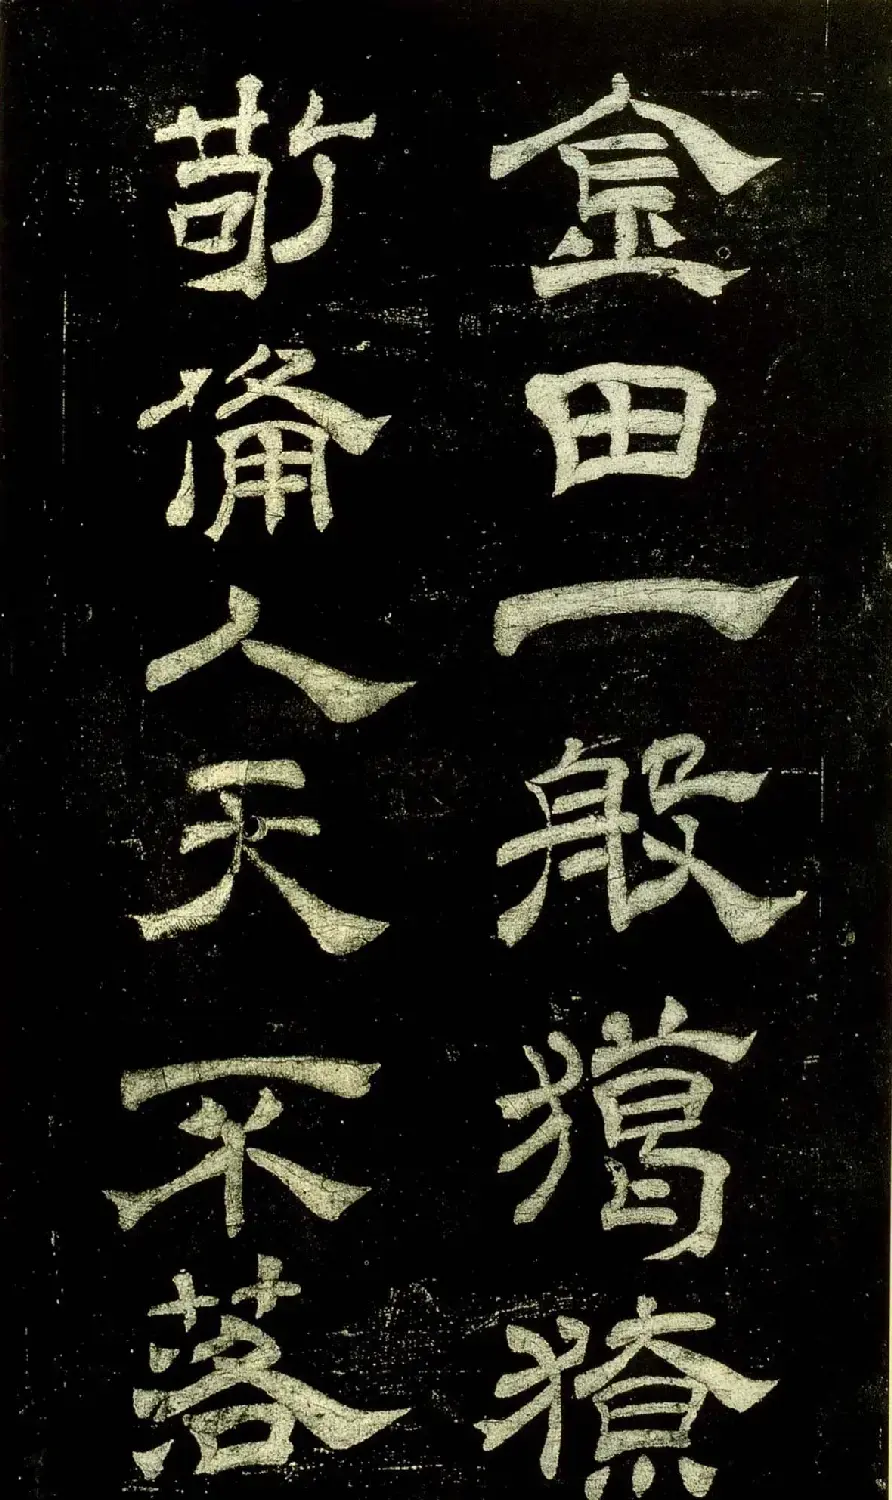 金田一般獦獠
敬備人天不落